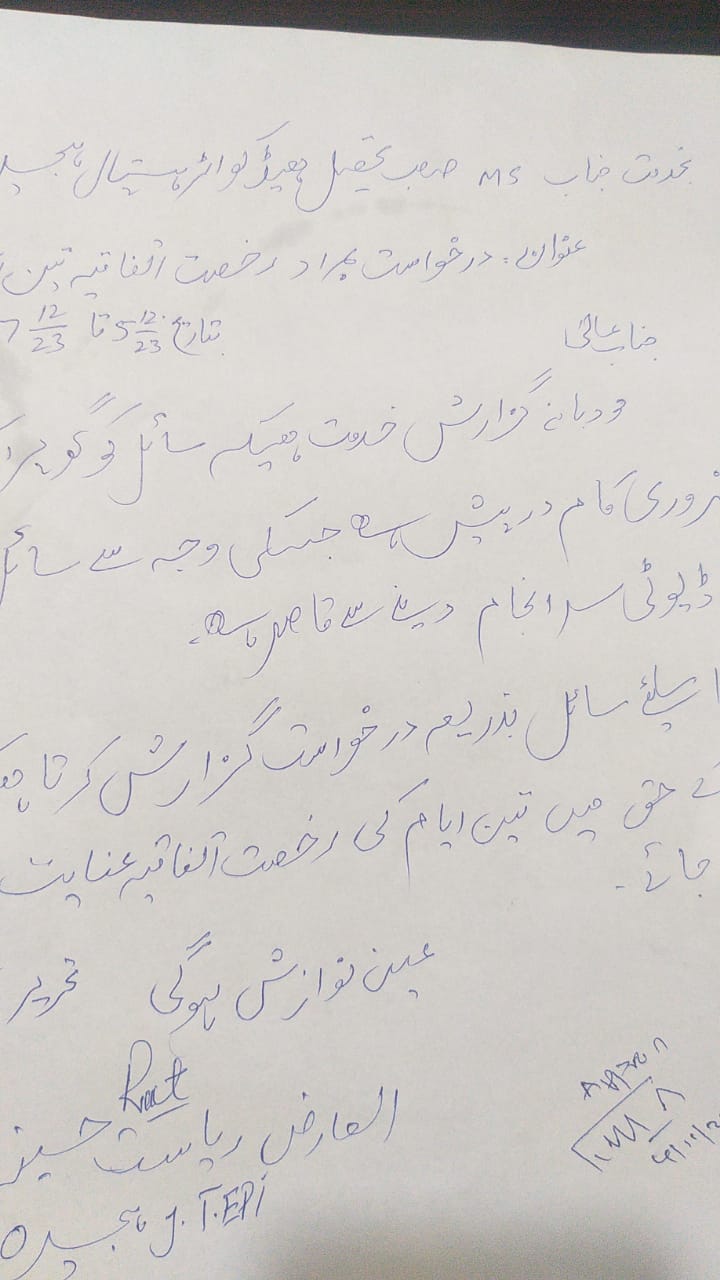 بخدمت جناب MS صاحب تحصیل ہیڈکوارٹر ہسپتال ہجیرہ
عنوان: درخواست بمراد رخصت اتفاقیہ تین
جناب عالی بتاریخ 5 12/23 تا 7 12/23
مودبانہ گزارش خدمت ہیکہ سائل کو گھر
ضروری کام درپیش ہے جسکی وجہ سے سائل
ڈیوٹی سرانجام دینے سے قاصر ہے۔
اسلئے سائل بذریعہ درخواست گزارش کرتا
کے حق میں تین ایام کی رخصت اتفاقیہ عنایت
جائے۔
عین نوازش ہوگی تحریر
العارض ریاست حسین
J.T.EPI ہجیرہ